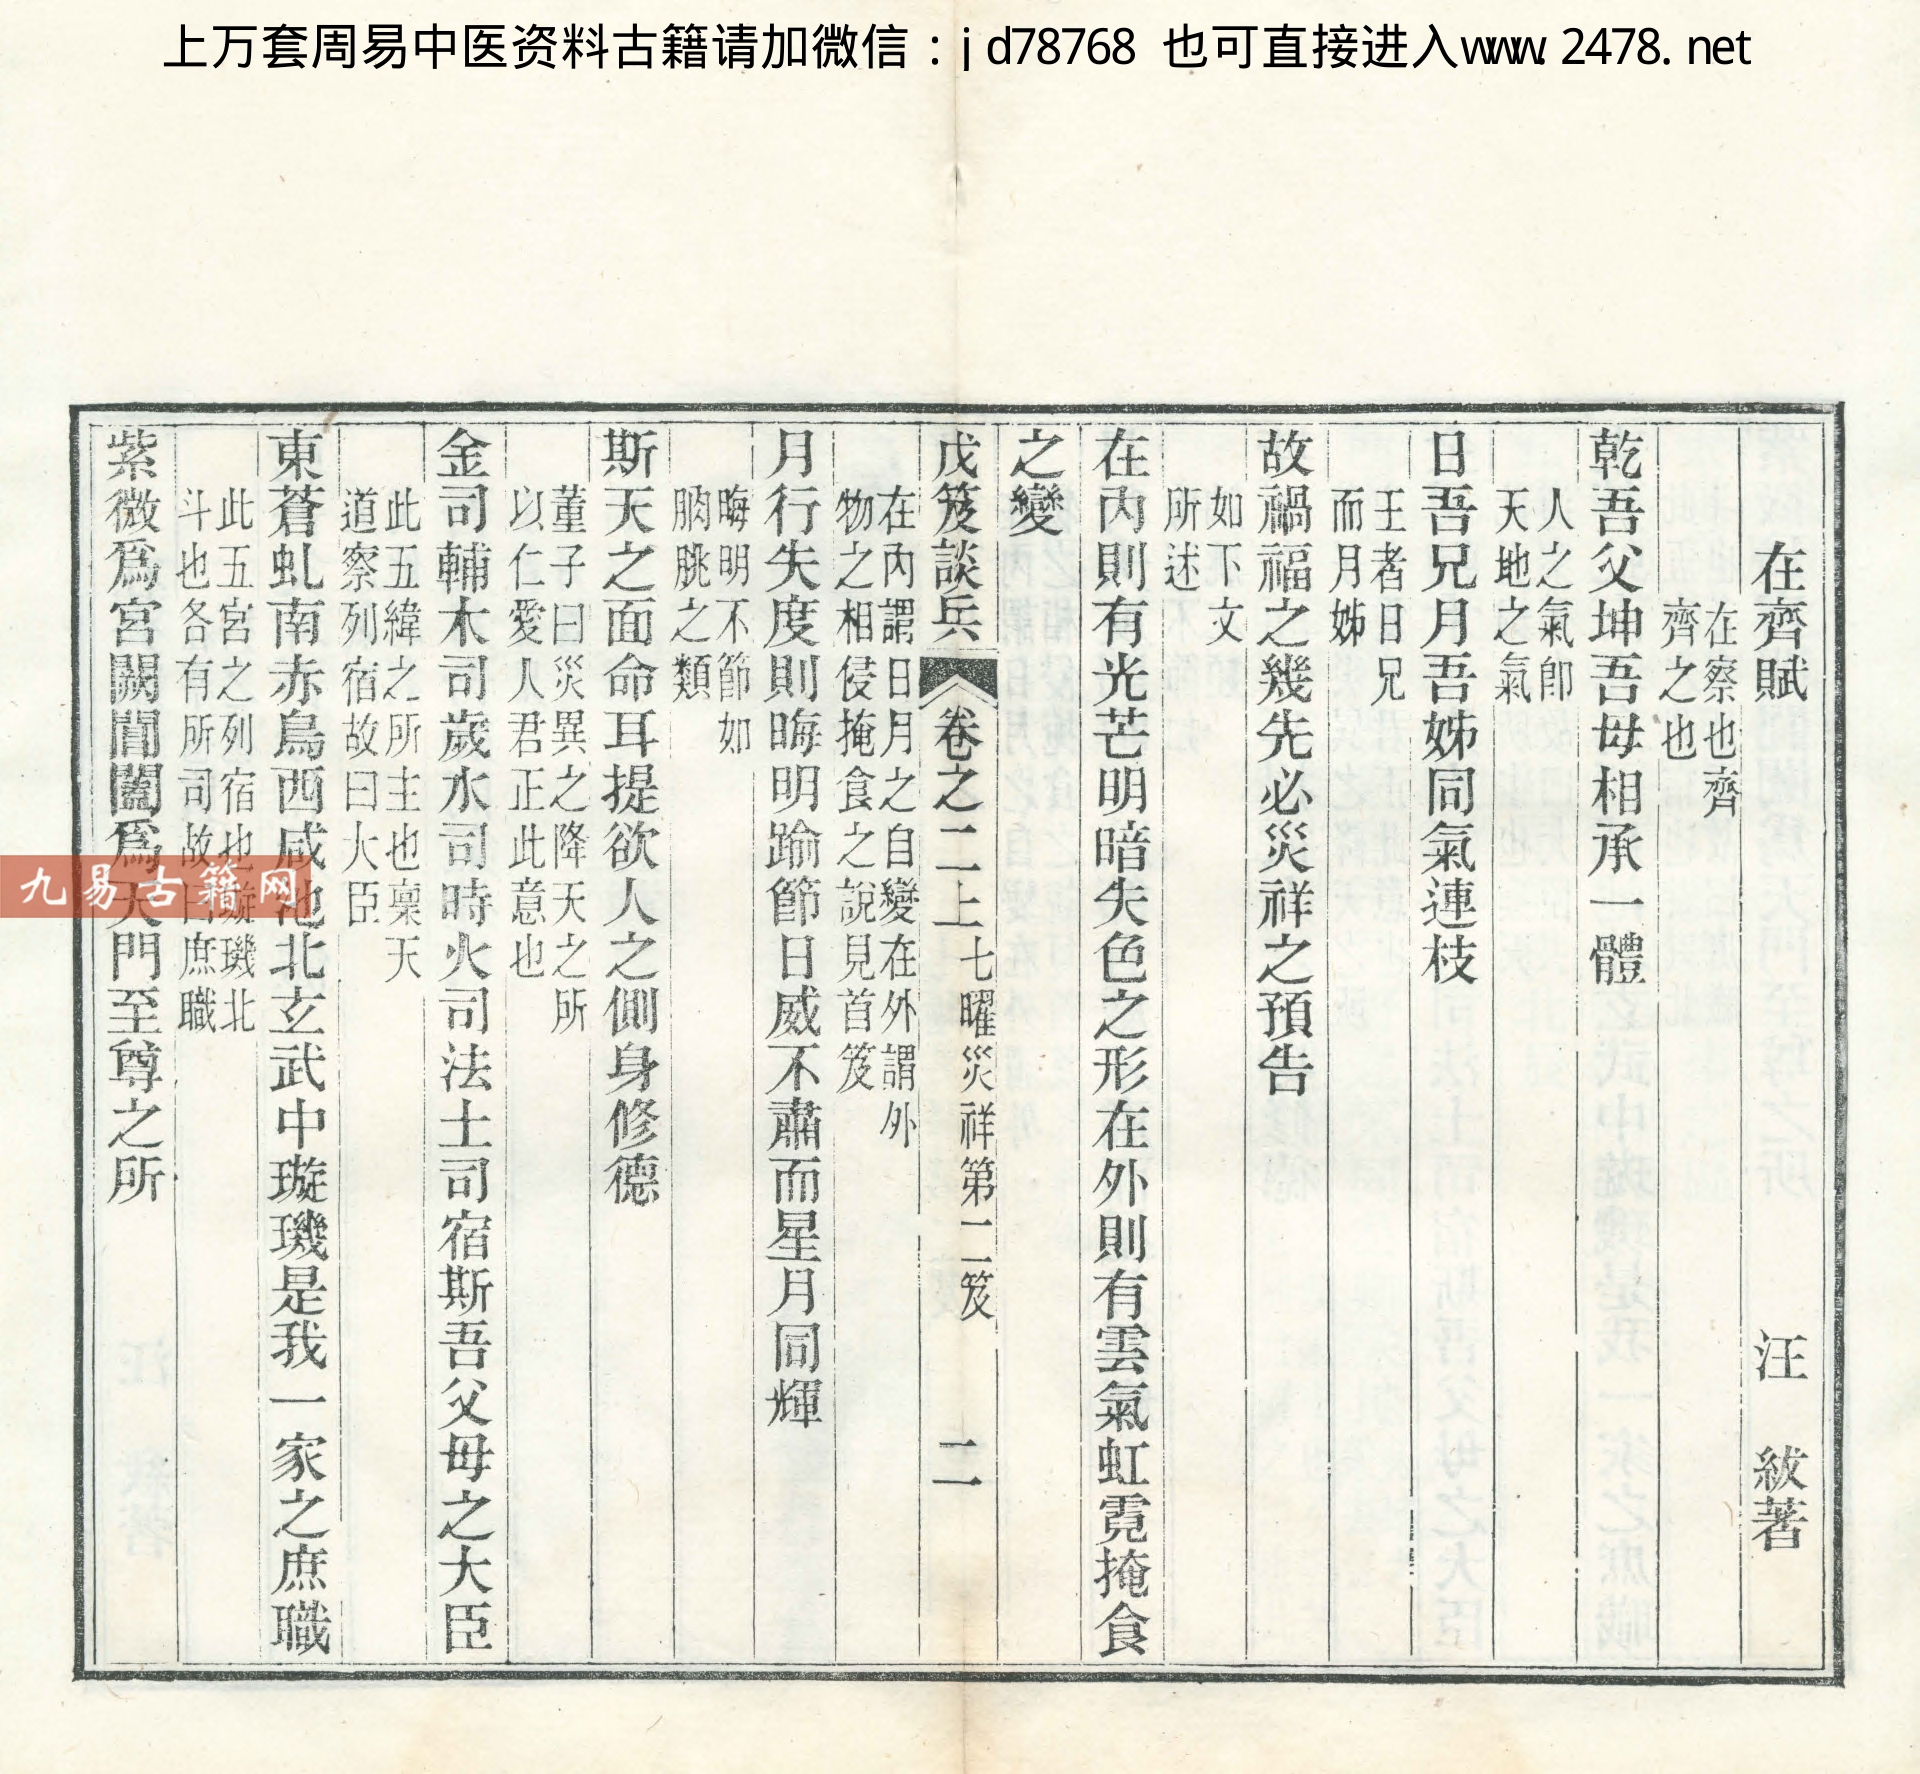 上万套周易中医资料古籍请加微信：jd78768 也可直接进入www.2478.net
在齊賦 汪 紱著
在察也齊
齊之也
乾吾父坤吾母相承一體
人之氣卽
天地之氣
日吾兄月吾姊同氣連枝
王者日兄
而月姊
故禍福之幾先必災祥之預告
如下文
所述
在內則有光芒明暗失色之形在外則有雲氣虹霓掩食
之變
戊笈談兵 卷之二上 七曜災祥第二笈 二
在內謂日月之自變在外謂外
物之相侵掩食之說見首笈
月行失度則晦明踰節日威不肅而星月同輝
晦明不節如
朒朓之類
斯天之面命耳提欲人之側身修德
董子曰災異之降天之所
以仁愛人君正此意也
金司輔木司歲水司時火司法土司宿斯吾父母之大臣
此五緯之所主也稟天
道察列宿故曰大臣
東蒼虬南赤鳥西咸池北玄武中璇璣是我一家之庶職
此五宮之列宿也璇璣北
斗也各有所司故曰庶職
紫微爲宮闕閶闔爲天門至尊之所
九易古籍网